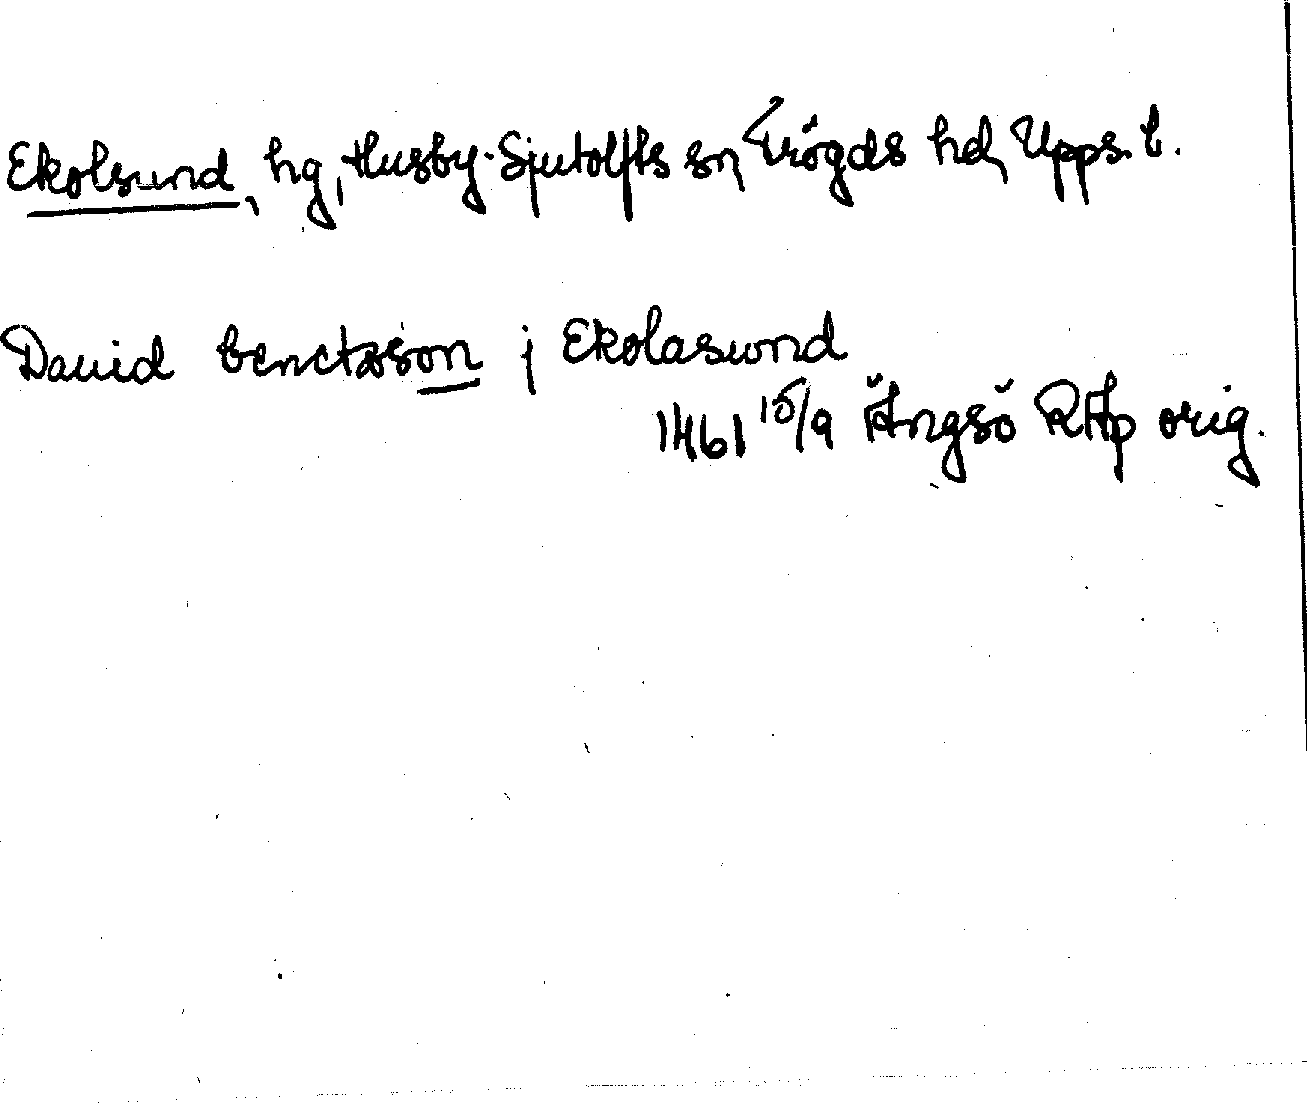 Ekolsund, hg, Husby-Sjutolfts sn, Trögds hd, Upps. l.
Dauid benctsson j Ekolasund
1461 15/9 Ängsö RAp orig.